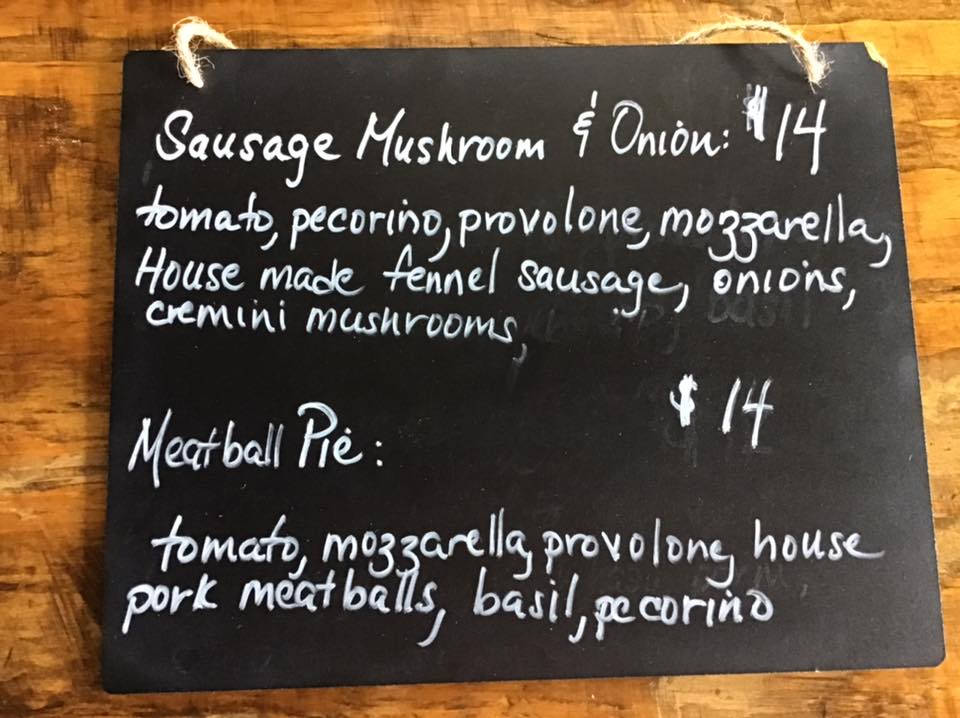 Sausage Mushroom & Onion: $14
tomato, pecorino, provolone, mozzarella,
House made fennel sausage, onions,
cremini mushrooms,
$14
Meatball Pie:
tomato, mozzarella, provolone, house
pork meatballs, basil, pecorino